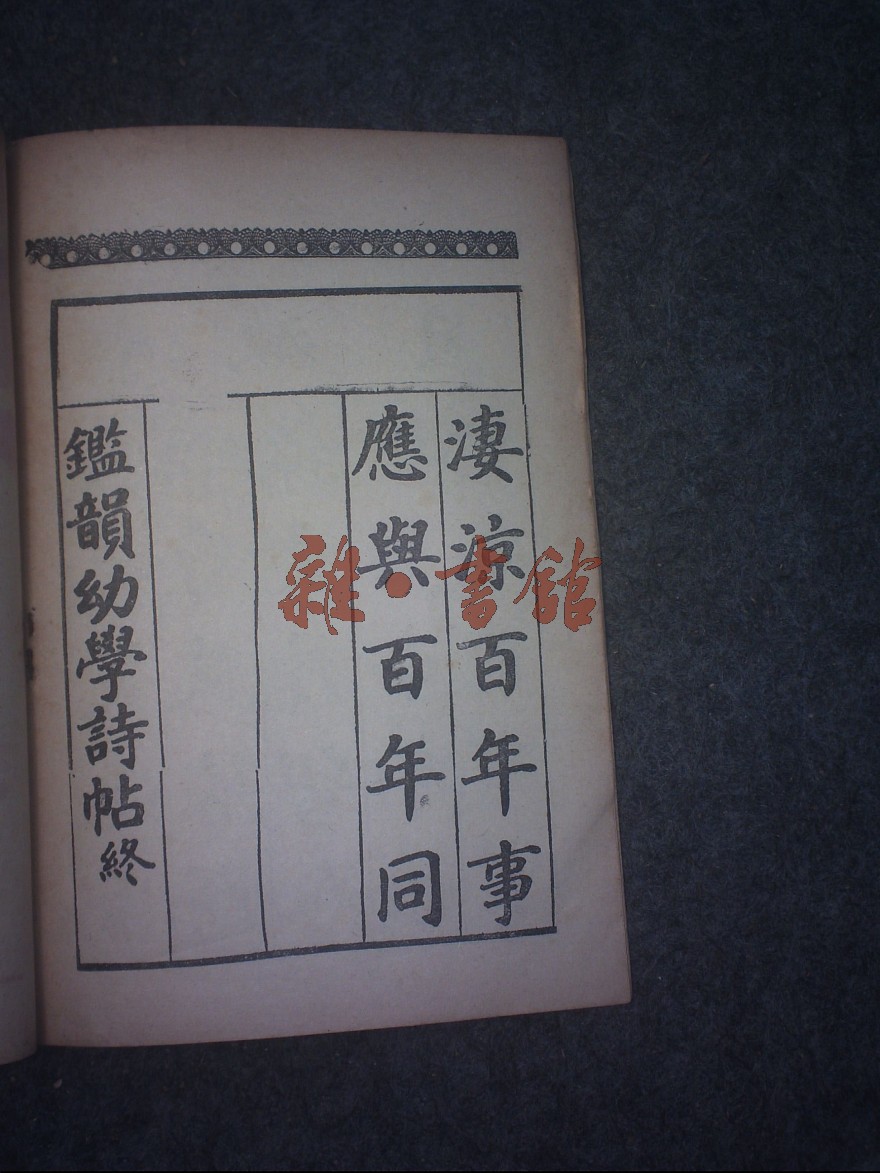 淒涼百年事
應與百年同
鑑韻幼學詩帖終
雜·書館